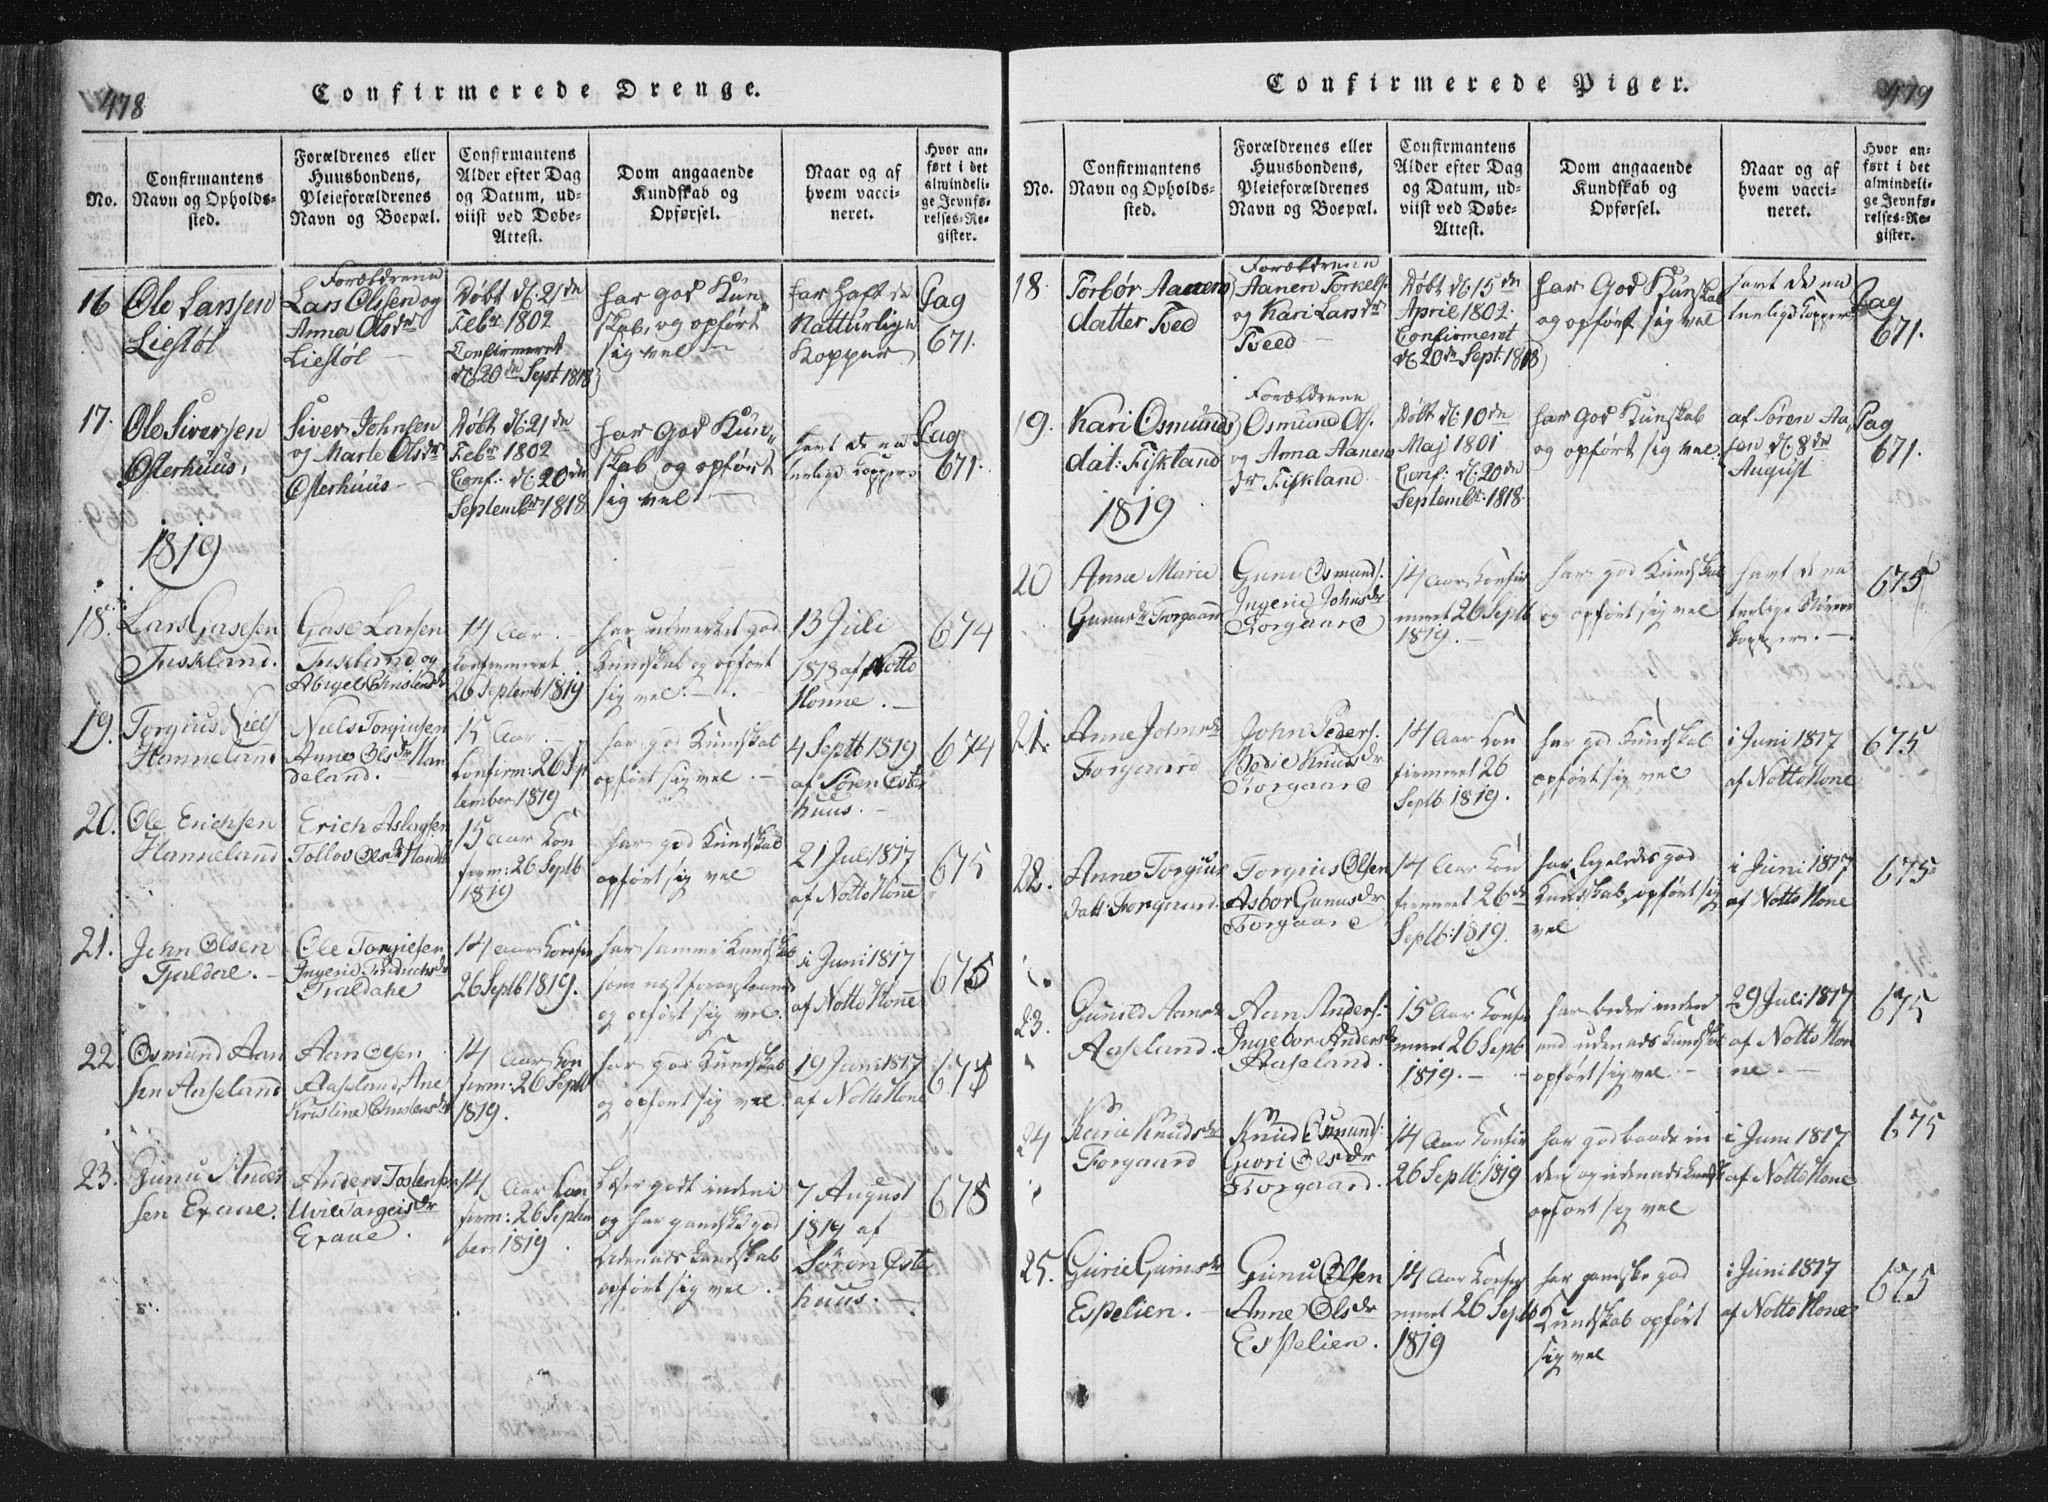 478
Confirmerede Drenge.
No.
Confirmantens
Navn og Opholds-
sted.
Forældrenes eller
Huusbondens,
Pleieforældrenes
Navn og Boepæl.
Confirmantens
Alder efter Dag
og Datum, ud-
viist ved Døbe-
Attest.
Dom angaaende
Kundskab og
Opførsel.
Naar og af
hvem vacci-
neret.
Hvor an-
ført i det
almindeli-
ge Jevnfø-
relses-Re-
gister.
16
Ole Larssen
Liestøl
Forældrene
Lars Olssen og
Anna Olsdr
Liestøl
Døbt d: 21de
Febr 1802
Confirmeret
d: 20de Sept 1818
har god Kun„
skab, og opført
sig vel
har haft de
Natturlige
Kopper
Pag
671.
17.
Ole Siversen
Østerhuus,
Siver Johnsen
og Marte Olsdr
Østerhuus
Døbt d: 21de
Febr 1802
Conf: d: 20de
Septembr 1818
har God Kun„
skab og opført
sig vel
havt de na
turlige Kopper
Pag
671.
1819
18.
Lars Gasesen
Fiskland.
Gase Larsen
Fiskland og
Abigel Christensdr
14 Aar.
Confirmeret
26 Septemb 1819
har udmerket god
Kundskab og opført
sig vel.
13 Juli
1818 af Notto
Honne.
674
19.
Torgius Niels
Hanneland
Niels Torgiusen
Anne Olsdr Han
deland.
15 Aar.
Confirm: 26 Sep
tember 1819
har god Kundskab
opført sig vel.
4 Septb 1819
af Søren Øster
huus.
674
20.
Ole Erichsen
Hanneland
Erich Aslagsen
Tollov Olsdr
15 Aar Kon
firm: 26 Septb
1819
har god Kundskab
opført sig vel
21 Juli 1817
af Notto Honne
675
21.
John Olsen
Tialdal.
Ole Torgiesen
Ingerid Fridrichsdr
Tialdahl
14 Aar
26 Septb 1819.
har samme Kundskab
som næst foranstaaende
og opført sig vel.
i Juni 1817
af Notto Honne
675
22.
Osmund Aan
sen Aaseland
Aan Olsen
Aaseland, Ane
Kristine Christensdr
14 Aar Kon
firm: 26 Septb
1819.
har god Kundskab
og opført sig vel.
19 Juni 1817
af Notto Hone
675
23.
Gunu Ander
sen Exaae.
Anders Toslensen
Exaae.
14 Aar Kon
firm: 26 Septem
ber 1819.
Læser godt indeni
og har ganske god
Udenads Kundskab
opført sig vel.
7 August
1819 af
Søren Øster
huus.
675
479
Confirmerede Piger.
No.
Confirmantens
Navn og Opholds-
sted.
Forældrenes eller
Huusbondens,
Pleieforældrenes
Navn og Boepæl.
Confirmantens
Alder efter Dag
og Datum, ud-
viist ved Døbe-
Attest.
Dom angaaende
Kundskab og
Opførsel.
Naar og af
hvem vacci-
neret.
Hvor an-
ført i det
almindeli-
ge Jevnfø-
relses-Re-
gister.
18.
Torbør Aanens
datter Tved
Forældrene
Aanen Torkels.
og Kari Larsdr
Tveed
Døbt d: 15de
April 1802.
Confirmeret
d: 20de Sept: 1818
har God Kunskab
og opført sig vel
havt de na
turlige Kopper
Pag
671.
19.
Kari Osmunds
dat: Fiskland
Forældrene
Osmund Ols.
og Anna Aanens
dr Fiskland
Døbt d: 10de
Maj 1801
Conf: d: 20de
Septembr: 1818.
har God Kunskab
og opført sig vel
af Søren Aa„
sen d. 8de
August
Pag
671.
1819
20
Anne Marie
Gunusdr Torgaard
Gunu Osmunds.
Ingerie Johnsdr
Torgaard
14 Aar Konfir
meret 26 Septb
1819.
har god Kundskab
og opført sig vel
havt de na
turlige
Kopper.
675
21.
Anne Johnsdr
Torgaard
John Peders.
Bodie Knudsdr
Torgaard
14 Aar Kon
firmeret 26
Septb 1819.
har god Kundskab
opført sig vel
i Juni 1817
af Notto Hone
675
22.
Anne Torgius
datt: Torgaard.
Torgius Olsen
Asbor Gunusdr
Torgaard
14 Aar Kon
firmeret 26de
Septb: 1819.
har ligeledes god
Kundskab, opført sig
vel
i Juni 1817
af Notto Hone
675
23.
Gunild Aansdr
Aaseland.
Aan Anders:
Ingebor Andersdr
Aaseland.
15 Aar Konfir
meret 26 Septb
1819.
har bedre inden
end udenads Kundskab
opført sig vel
29 Juli 1817
af Notto Hon
ne.
675
24
Karie Knudsdr
Torgaard
Knud Osmunds:
Guori Olsdr
Torgaard.
14 Aar Konfir
26 Septb 1819
har god baade in
den og udenads Kundsk
opført sig vel
i Juni 1817
af Notto Hone
675
25.
Gurie Gunusdr
Espelien.
Gunu Olsen
Anne Olsdr
Espelien.
14 Aar Konfir
meret 26 Septb
1819
har ganske god
Kundskab opført
sig vel
i Juni 1817
af Notto Hone
675